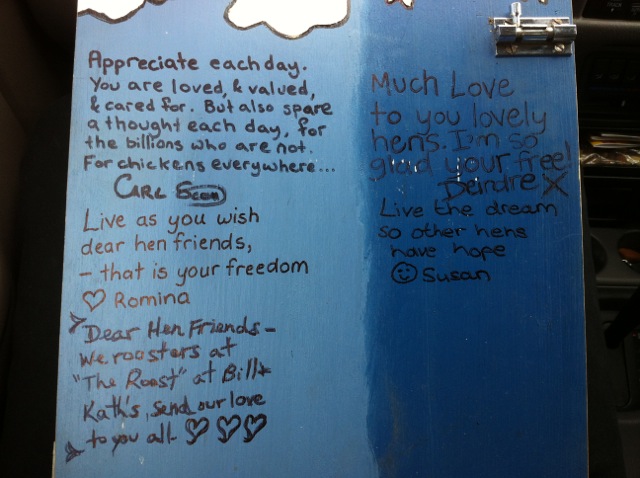 Appreciate each day.
You are loved, & valued,
& cared for. But also spare
a thought each day, for
the billions who are not.
For chickens everywhere...
CARL
Live as you wish
dear hen friends,
- that is your freedom
♡ Romina
Dear Hen Friends -
we roosters at
"The Roost" at Bill &
Kath's, send our love
to you all ♡ ♡ ♡
Much Love
to you lovely
hens. I'm so
glad your free!
Deirdre X
Live the dream
so other hens
have hope
☺ Susan